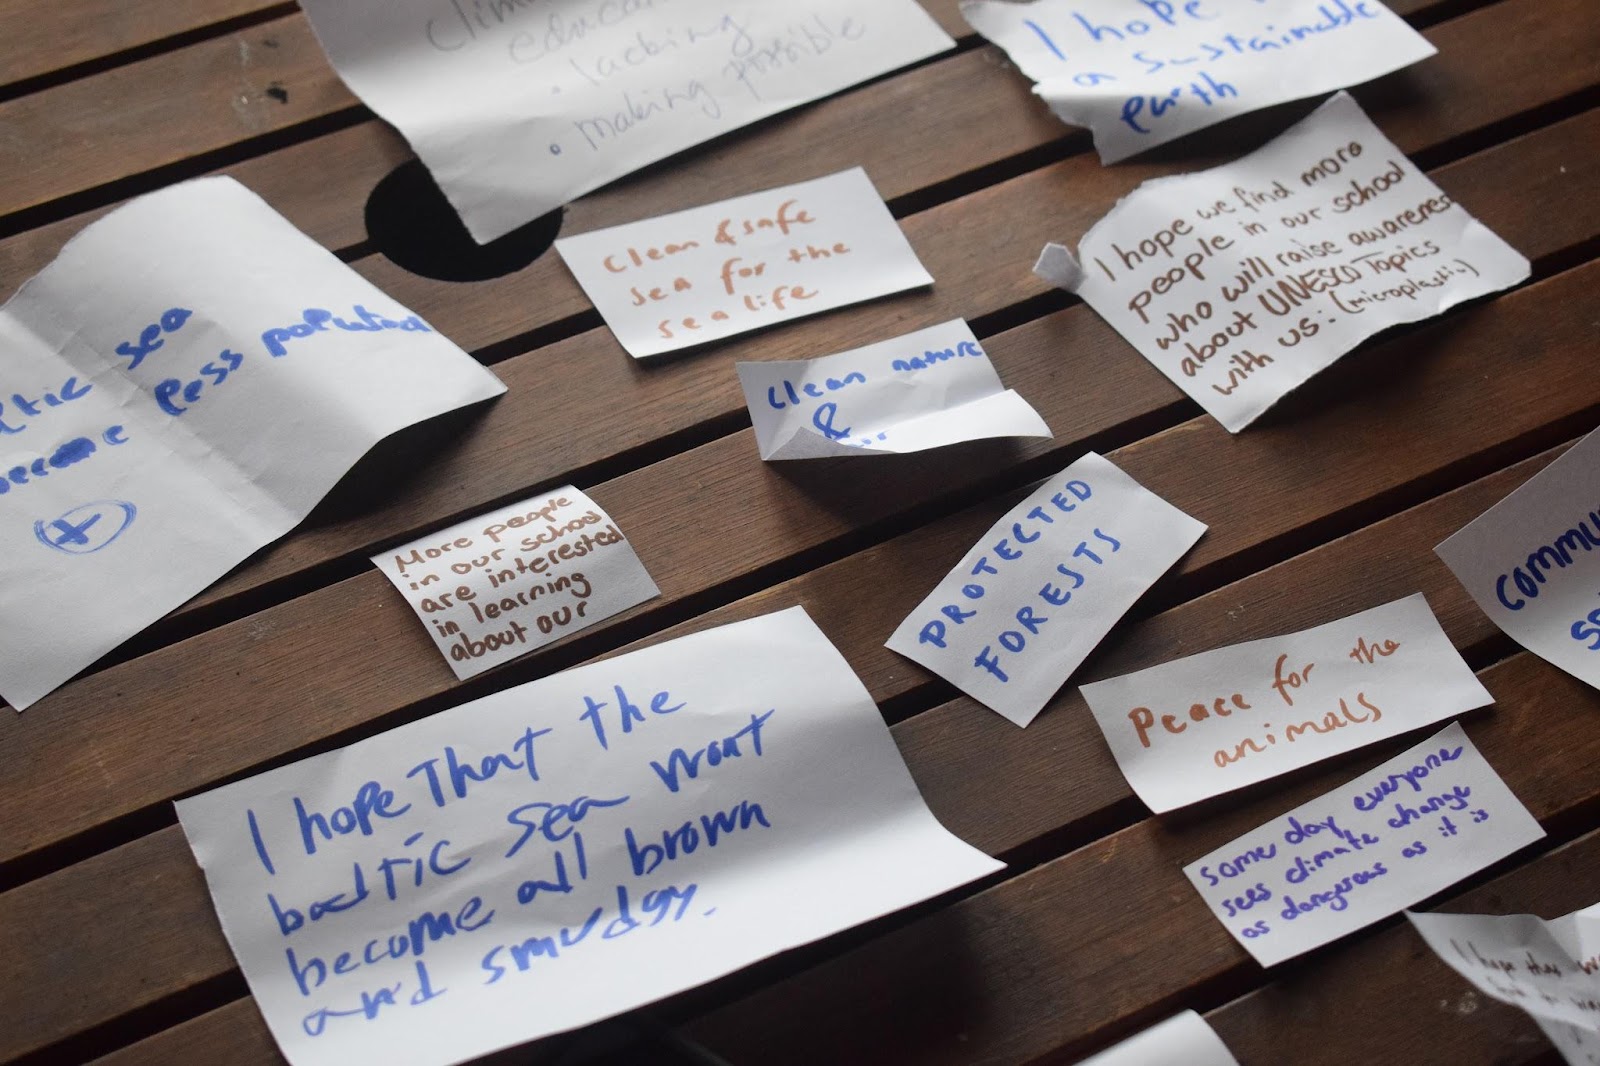 lacking
making possible
I hope
a sustainable
earth
Clean & safe
sea for the
sea life
I hope we find more
people in our school
who will raise awareness
about UNESCO Topics
with us :(microplastic)
sea
become less polluted
+
clean nature
&
More people
in our school
are interested
in learning
about our
PROTECTED
FORESTS
Peace for the
animals
some day everyone
sees climate change
as dangerous as it is
I hope That the
baltic sea wont
become all brown
and smudgy.
I hope that